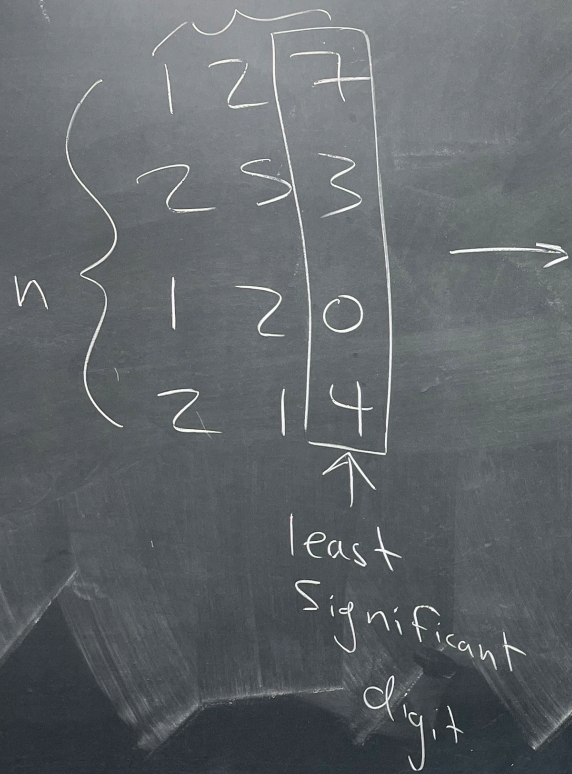 1 2 7
2 5 3
n
1 2 0
2 1 4
least
Significant
digit